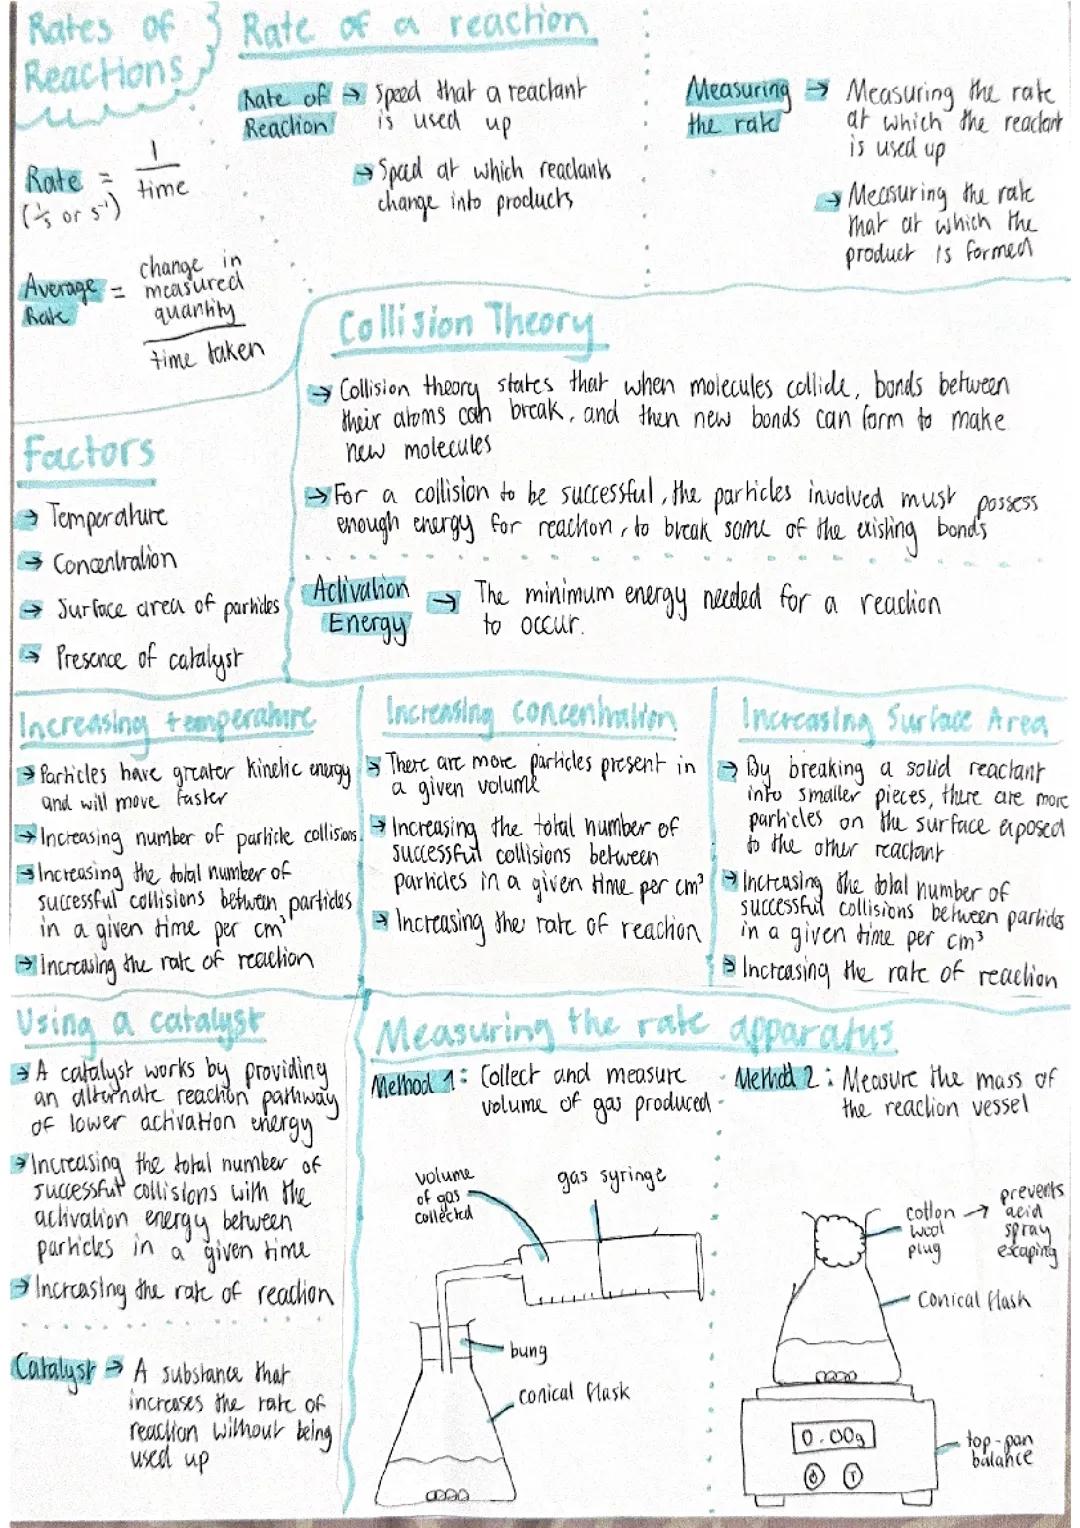 Rates of
Reactions
Rate = 1
time
(1/s or s⁻¹)
Average Rate = change in
measured
quantity
time taken
Rate of a reaction
Rate of Reaction → Speed that a reactant
is used up
→ Speed at which reactants
change into products
Measuring the rate → Measuring the rate
at which the reactant
is used up
→ Measuring the rate
that at which the
product is formed
Factors
→ Temperature
→ Concentration
→ Surface area of particles
→ Presence of catalyst
Collision Theory
→ Collision theory states that when molecules collide, bonds between
their atoms can break, and then new bonds can form to make
new molecules
→ For a collision to be successful, the particles involved must possess
enough energy for reaction, to break some of the existing bonds
Activation Energy → The minimum energy needed for a reaction
to occur.
Increasing temperature
→ Particles have greater kinetic energy
and will move faster
→ Increasing number of particle collisions
→ Increasing the total number of
successful collisions between particles
in a given time per cm³
→ Increasing the rate of reaction
Increasing Concentration
→ There are more particles present in
a given volume
→ Increasing the total number of
successful collisions between
particles in a given time per cm³
→ Increasing the rate of reaction
Increasing Surface Area
→ By breaking a solid reactant
into smaller pieces, there are more
particles on the surface exposed
to the other reactant
→ Increasing the total number of
successful collisions between particles
in a given time per cm³
→ Increasing the rate of reaction
Using a catalyst
→ A catalyst works by providing
an alternate reaction pathway
of lower activation energy
→ Increasing the total number of
successful collisions with the
activation energy between
particles in a given time
→ Increasing the rate of reaction
Catalyst → A substance that
increases the rate of
reaction without being
used up
Measuring the rate apparatus
Method 1: Collect and measure
volume of gas produced
volume
of gas
collected
gas syringe
bung
conical flask
Method 2: Measure the mass of
the reaction vessel
cotton
wool
plug → prevents
acid
spray
escaping
Conical flask
0.00g
T
top-pan
balance